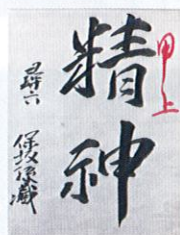 甲上
精神
尋六
保坂俊蔵